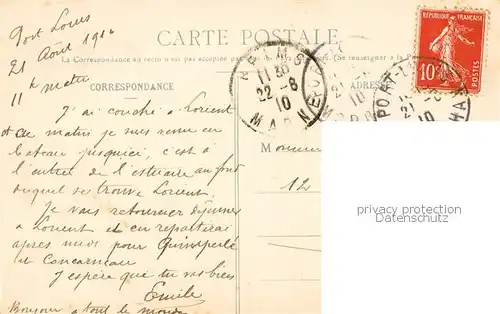 Port Louis
21 Août 1910
11 h matin
CARTE POSTALE
La Correspondance au recto n'est pas acceptée
(Se renseigner à la Poste)
CORRESPONDANCE
ADRES
J'ai couché à Lorient
et ce matin je suis venu en
bateau jusqu'ici, c'est à
l'entrée de l'estuaire au fond
duquel se trouve Lorient.
Je vais retourner déjeuner
à Lorient et en repartirai
après midi pour Quimperlé
et Concarneau
J'espère que tu vas bien
Emile
Bonjour à tout le monde
Monsieur
12
REIMS
11 30
22 - 8
10
MARNE
21
10
PORT-L
21 - 8
10
RÉPUBLIQUE FRANÇAISE
10c
POSTES
privacy protection
Datenschutz